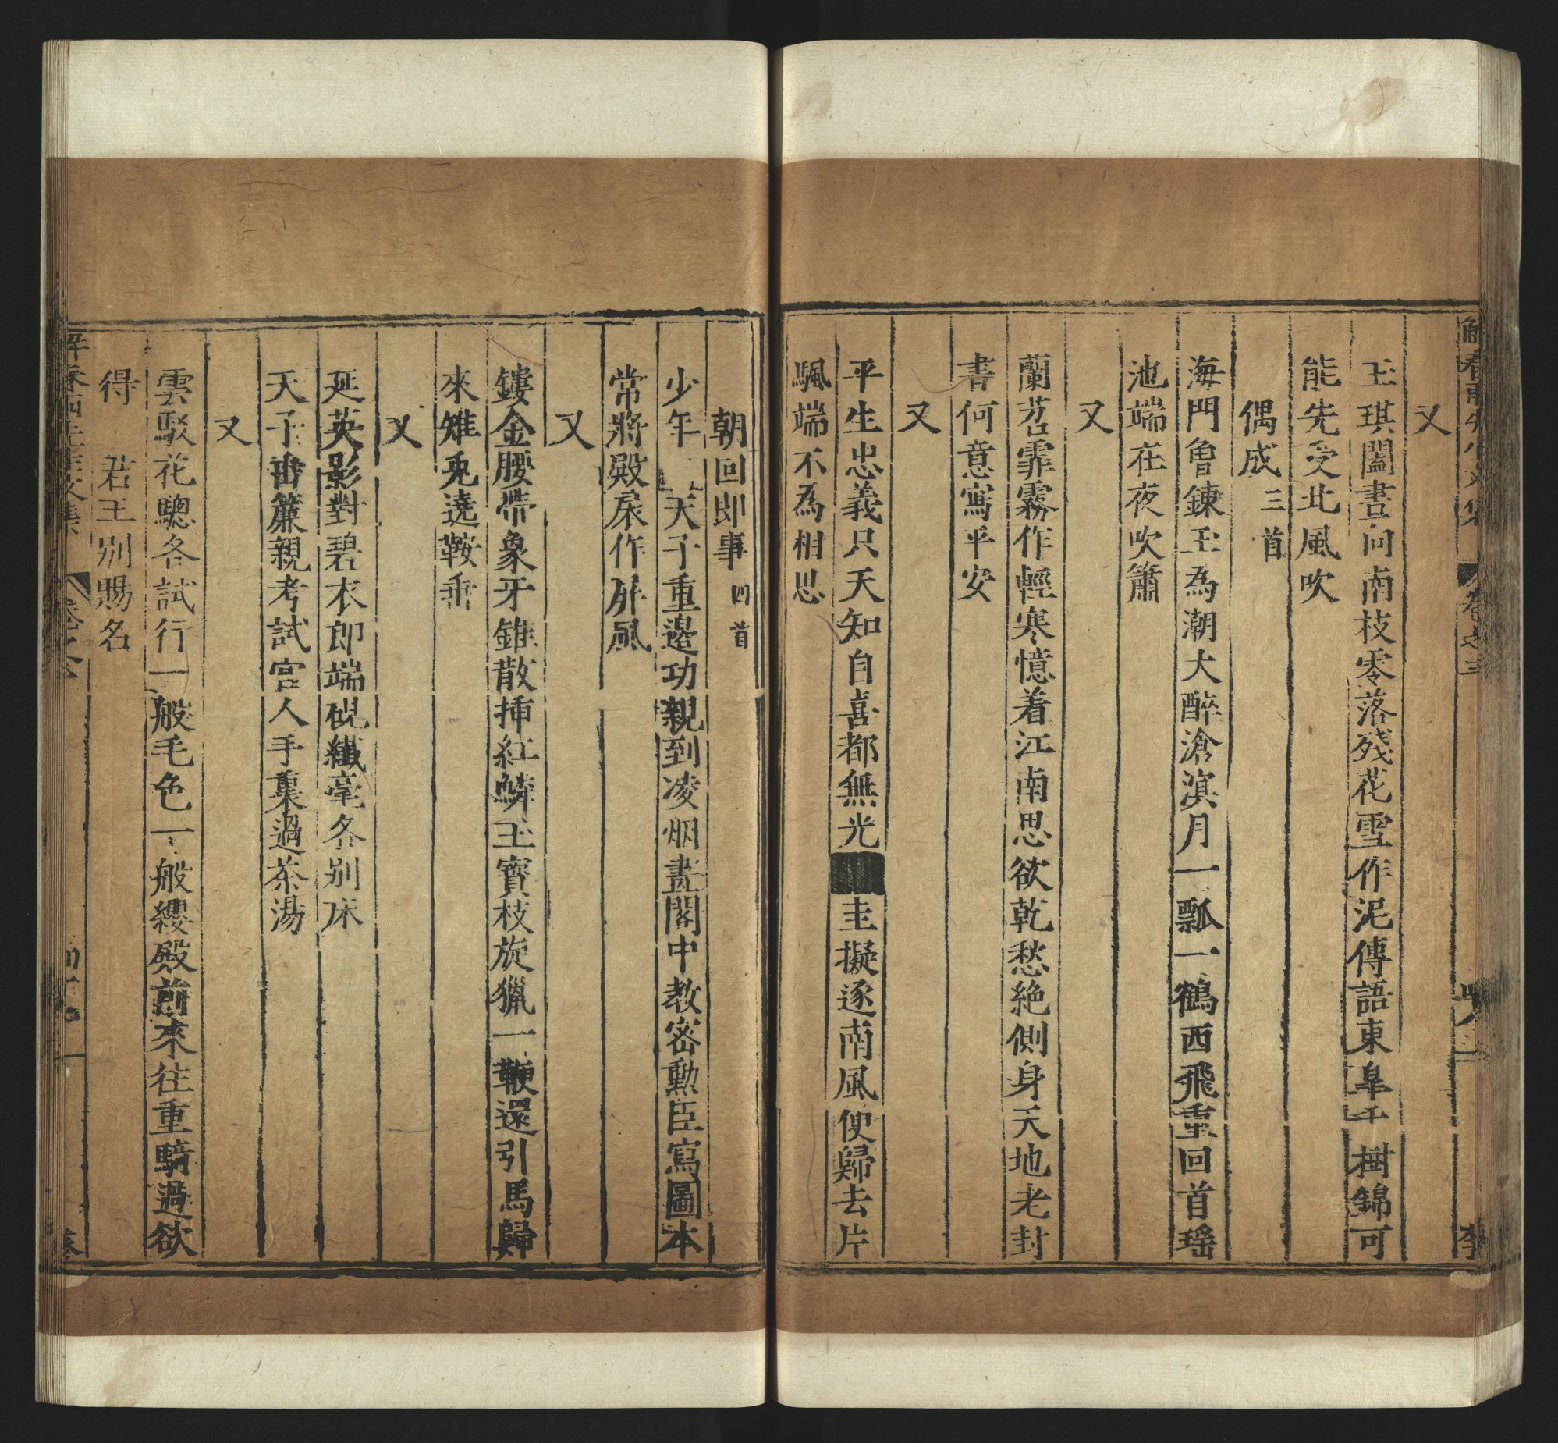 解春雨先生文集 卷之三
又
玉琪闔晝向南枝零落殘花雪作泥傳語東臯千樹錦可
能先受北風吹
偶成三首
海門魯鍊玉為潮大醉滄溟月一瓢一鶴西飛重回首瑶
池端在夜吹簫
又
蘭苕霏霧作輕寒憶着江南思欲乾愁絶側身天地老封
書何意寫平安
又
平生忠義只天知自喜都無光圭擬逐南風便歸去片
颿端不為相思
朝回即事四首
少年天子重邊功親到凌烟畫閣中教密勲臣寫圖本
常將殿扆作屏風
又
鏤金腰帶象牙錐散揷紅蟒玉寳枝旋獵一鞭還引馬歸
來雉兎遶鞍垂
又
延英影對碧衣郎端硯纎毫各别床
天子𠂹簾親考試宫人手裏過茶湯
又
雲駁花驄各試行一般毛色一般纓殿前來徃重騎過欲
得 君王别賜名